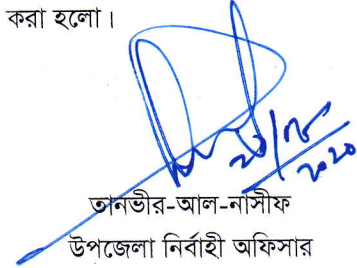 করা হলো।
২০২০
তানভীর-আল-নাসীফ
উপজেলা নির্বাহী অফিসার